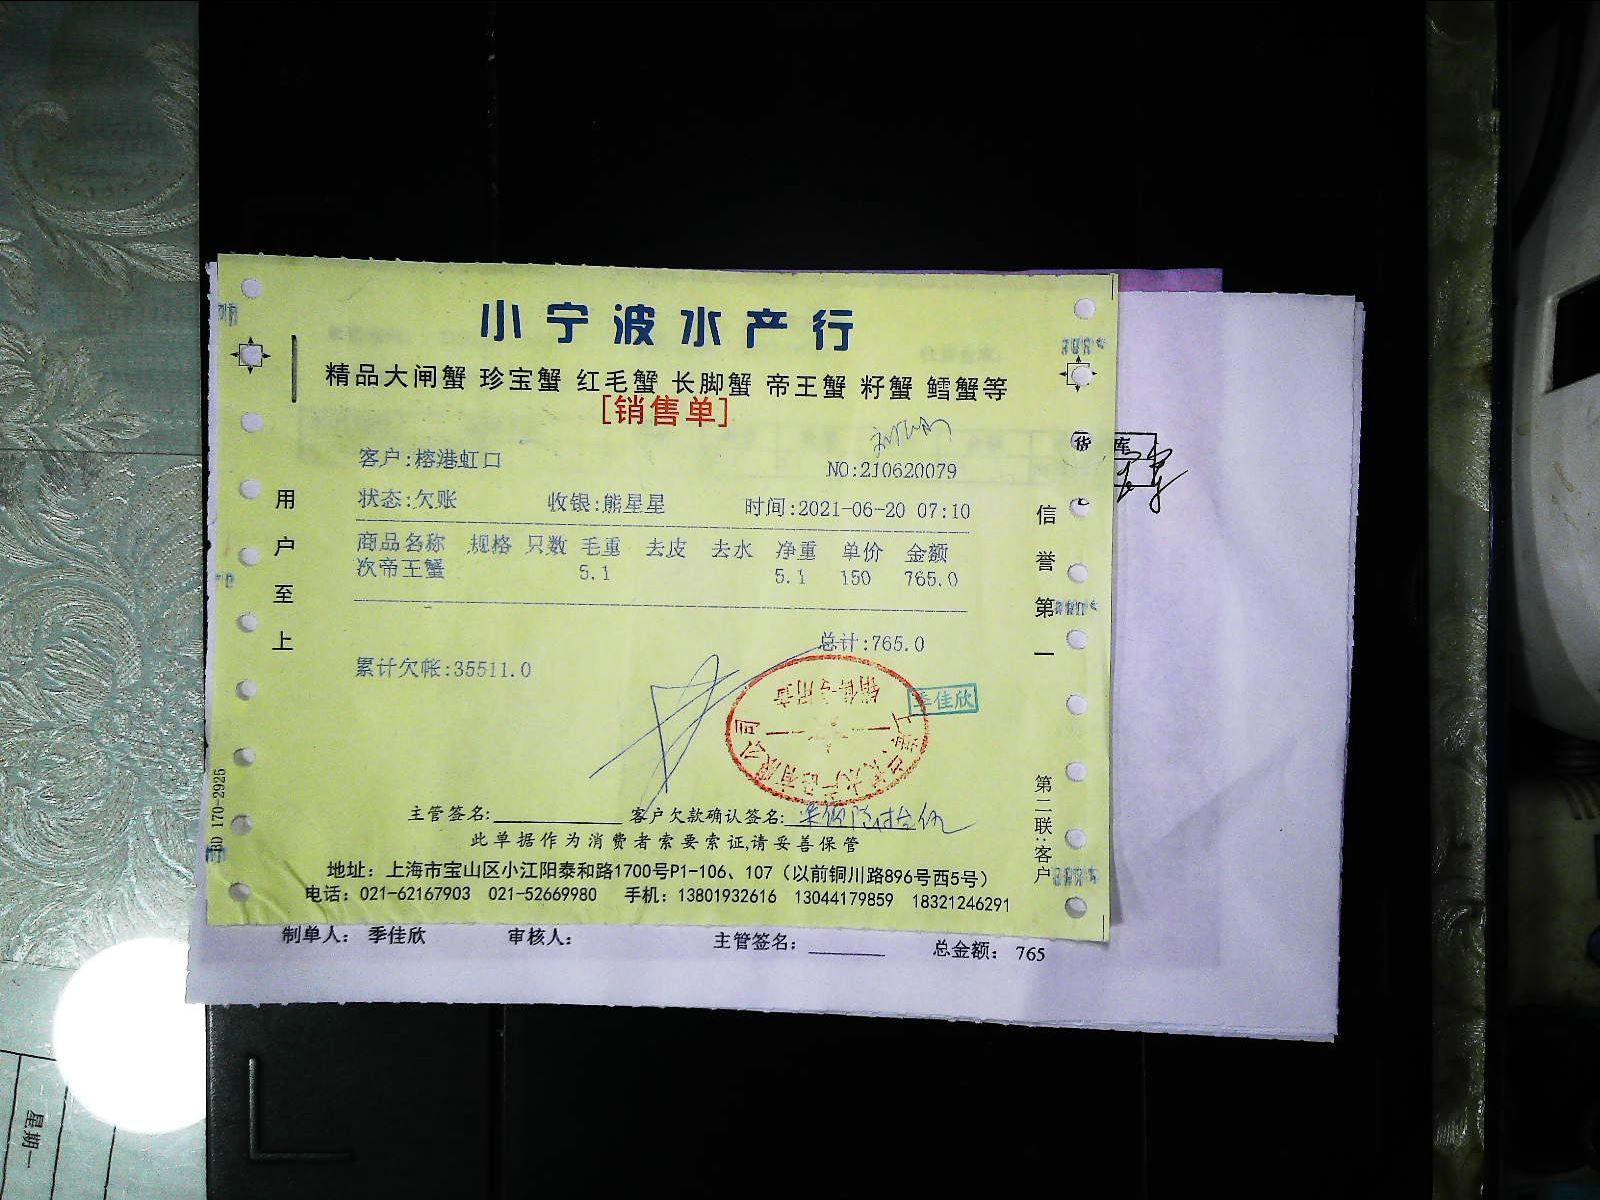 小宁波水产行
精品大闸蟹 珍宝蟹 红毛蟹 长脚蟹 帝王蟹 籽蟹 鳕蟹等
[销售单]
客户:榕港虹口
NO:210620079
状态:欠账 收银:熊星星 时间:2021-06-20 07:10
商品名称 规格 只数 毛重 去皮 去水 净重 单价 金额
次帝王蟹 5.1 5.1 150 765.0
总计:765.0
累计欠帐:35511.0
季佳欣
主管签名: 客户欠款确认签名:
此单据作为消费者索要索证,请妥善保管
地址：上海市宝山区小江阳泰和路1700号P1-106、107（以前铜川路896号西5号）
电话：021-62167903 021-52669980 手机：13801932616 13044179859 18321246291
用户至上
信誉第一
第二联:客户
BD 170-2925
制单人： 季佳欣 审核人： 主管签名： 总金额： 765
星期一